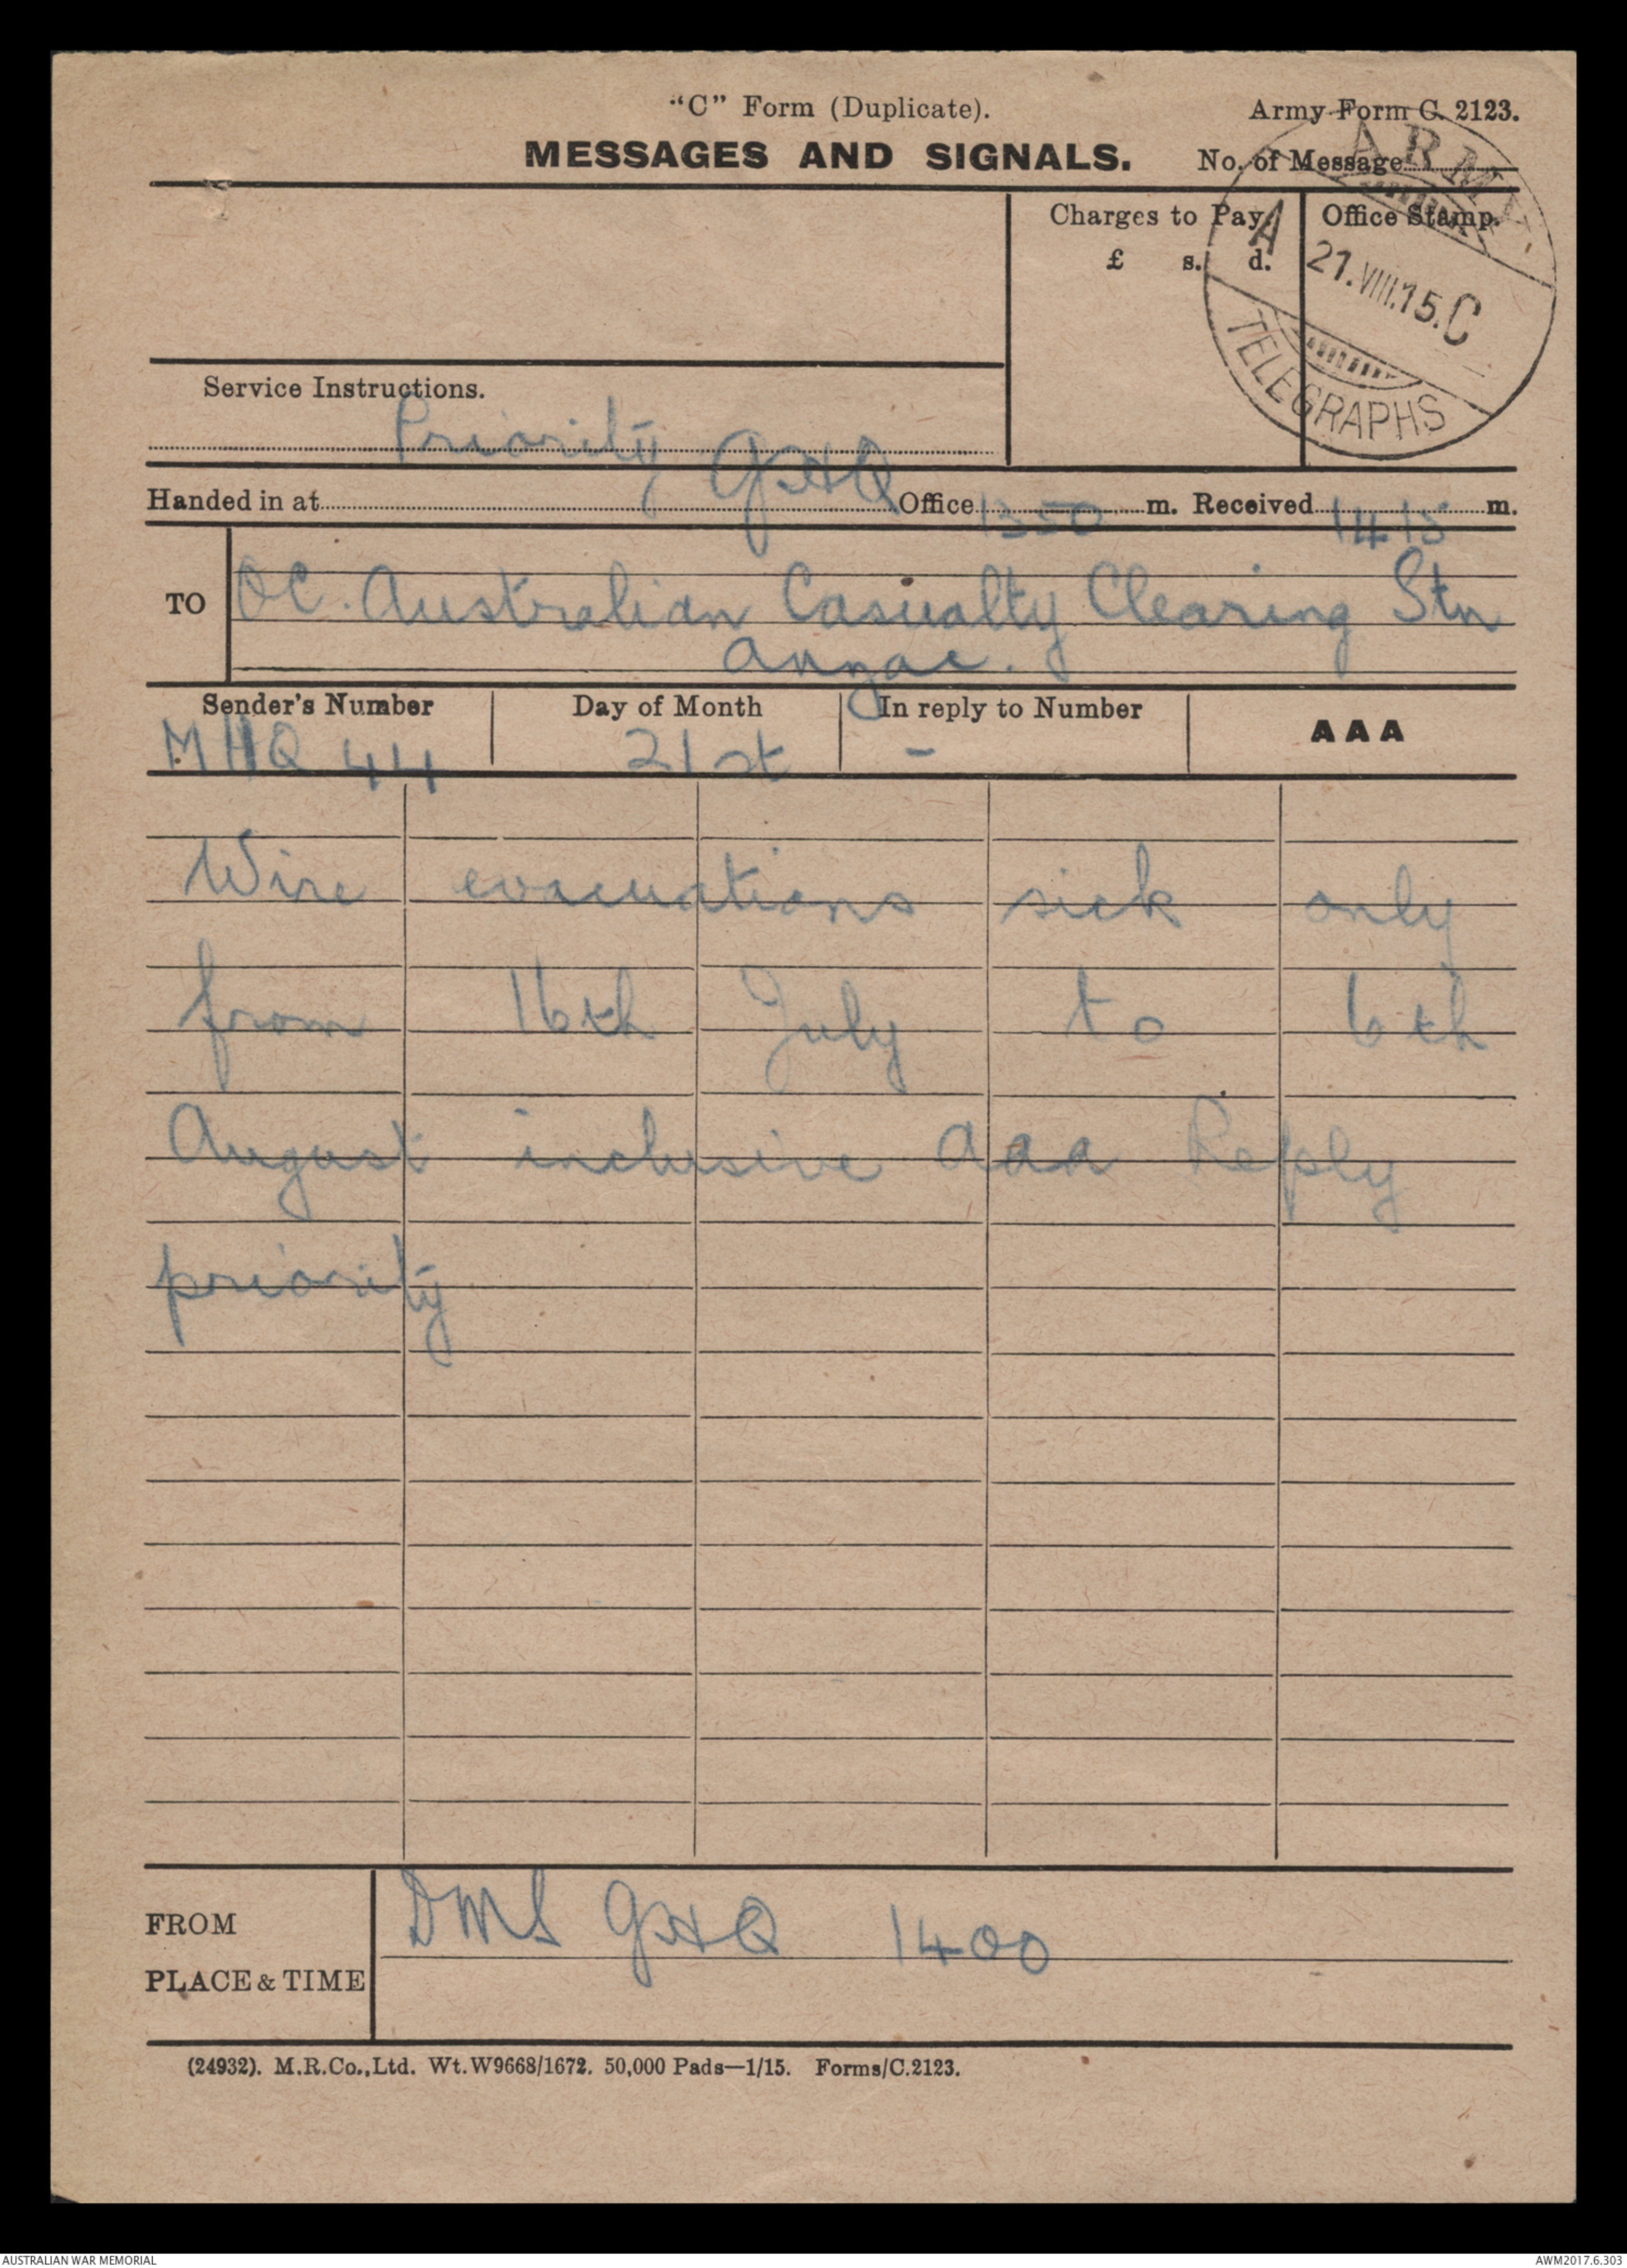 "C" Form (Duplicate). Army Form C. 2123.
MESSAGES AND SIGNALS. No. of Message
Charges to Pay. Office Stamp.
£ s. d.
ARMY TELEGRAPHS
A 21.VIII.15.C
Service Instructions.
Priority GHQ
Handed in at Office 1350 m. Received 1415 m.
TO OC. Australian Casualty Clearing Stn
Anzac.
Sender's Number Day of Month In reply to Number AAA
MHQ 44 21st -
Wire evacuations sick only
from 16th July to 6th
August inclusive aaa Reply
priority
FROM DMS GHQ 1400
PLACE & TIME
(24932). M.R.Co.,Ltd. Wt.W9668/1672. 50,000 Pads—1/15. Forms/C.2123.
AUSTRALIAN WAR MEMORIAL AWM2017.6.303